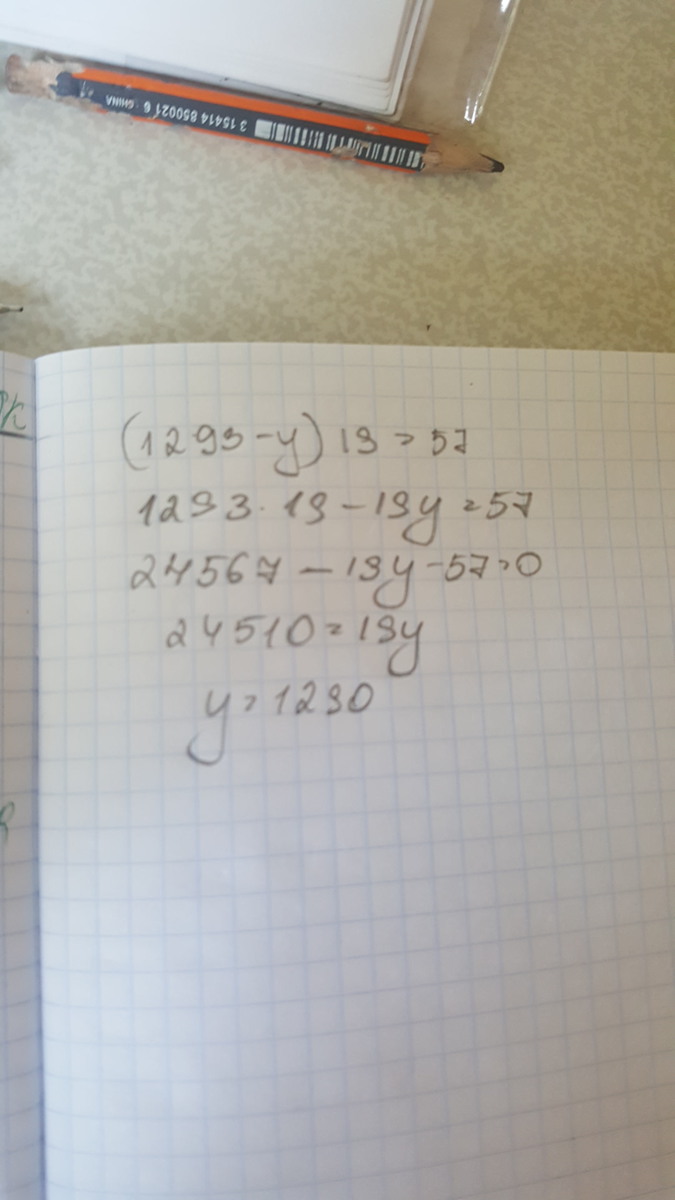 3 15414 850021 6 CHINA
(1293-y) 19 = 57
1293 · 19 - 19y = 57
24567 - 19y - 57 = 0
24510 = 19y
y = 1290